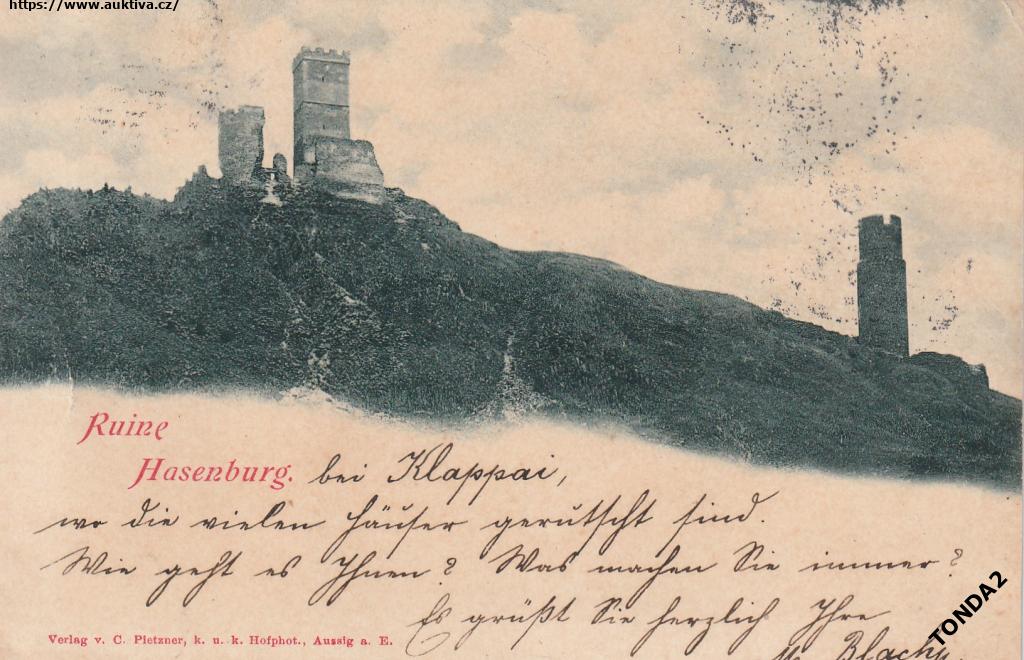 https://www.auktiva.cz/
Ruine
Hasenburg. bei Klappai,
wo die vielen Häuser gerutscht sind.
Wie geht es Ihnen? Was machen Sie immer?
Es grüßt Sie herzlich Ihre
Verlag v. C. Pietzner, k. u. k. Hofphot., Aussig a. E.
M. Blachy.
TONDA2